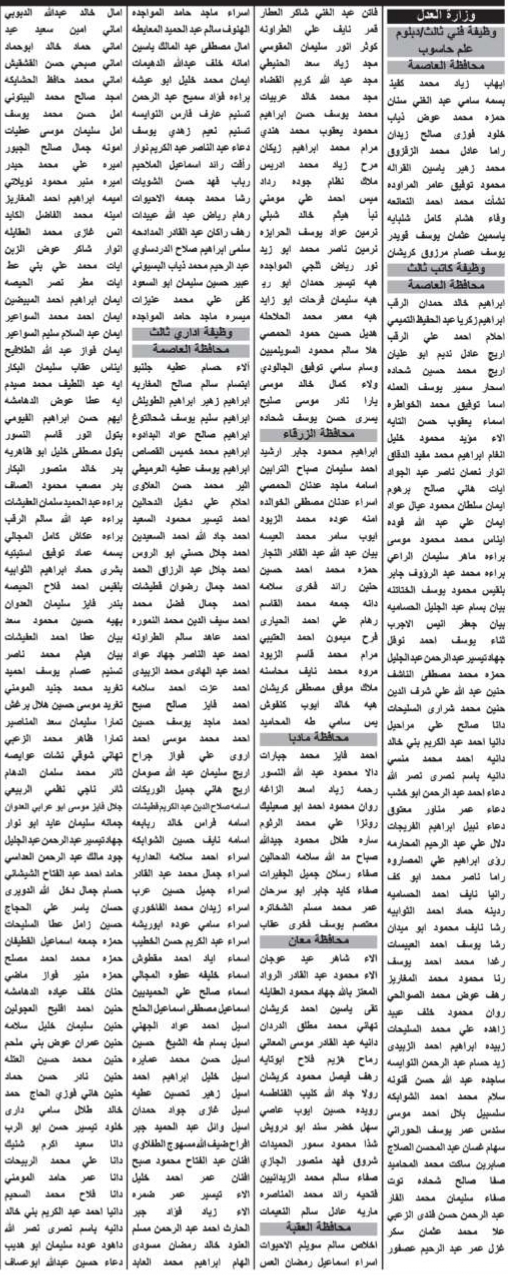 وزارة العدل
وظيفة فني ثالث/دبلوم
علم حاسوب
محافظة العاصمة
ايهاب زياد محمد كفيد
بسمه سامي عبد الغني سنان
حمزه محمد عوض ذياب
خلود فوزي صالح زيدان
راما عادل محمد الزقزوق
محمد زهير ياسين القراله
محمود توفيق عامر المراوده
نشأت محمد احمد النعانعه
وفاء هشام كامل شلبايه
ياسمين عثمان يوسف قويدر
يوسف عصام مرزوق كريشان
وظيفة كاتب ثالث
محافظة العاصمة
ابراهيم خالد حمدان الرقب
ابراهيم زكريا عبد الحفيظ التميمي
احلام احمد علي الرقب
اريج عادل نديم ابو عليان
اريج محمد حسين شحاده
اسحار سمير يوسف العمله
اسما توفيق محمد الخواطره
اسماء يعقوب حسن التايه
الاء مؤيد محمود خليل
انغام ابراهيم محمد مفيد الدقاق
انوار نعمان ناصر عبد الجواد
ايات هاني صالح برهوم
ايمان سلطان محمود عيال عواد
ايمان علي عبد الله فوده
ايناس محمد محمود موسى
براءه ماهر سليمان الراعي
براءه محمد عبد الرؤوف جابر
بلقيس محمود يوسف الختاتنه
بيان بسام عبد الجليل الحساميه
بيان جعفر انيس الاجرب
ثناء يوسف احمد نوفل
جهاد تيسير عبد الرحمن عبد الجليل
حمزه محمد مصطفى الناشف
حنين عبد الله علي شرف الدين
حنين محمد شراري السليحات
دانا صالح علي مراحيل
دانيا احمد عبد الكريم بني خالد
دانيه احمد محمد منسي
دانيه ياسم نصري نصر الله
دعاء احمد عبد الرحمن ابو خشب
دعاء عمر مناور معتوق
دعاء نبيل ابراهيم الفريجات
دلال علي عبد الرحيم المحارمه
رؤى ابراهيم علي المصاروه
راما ناصر محمد ابو كف
رانيا نايف احمد الحساميه
ردينه حماد احمد الثوابيه
رشا نايف محمود ابو ميدان
رشا يوسف احمد العبيسات
رغدا محمد احمد يوسف
رنا محمود محمد المغاريز
رهف عوض محمد الصوالحي
روان محمود خلف عبيد
زاهده علي محمد السليحات
زبيده ابراهيم احمد الزبيدي
زيد حسام عبد الرحمن التوايسه
ساجده عبد الله حسن قنونه
سلام محمد احمد الشوابكه
سلسبيل بلال احمد موسى
سندس عمر يوسف الحوراني
سهام غسان عبد المحسن الصلاج
صابرين ساكت محمد المحاميد
صفا صالح شحاده توت
صفاء سليمان محمد الفار
عبد الرحمن حسن فندي الزعبي
علا محمد عثمان سكر
غزل عمر عبد الرحيم عصفور
فاتن عبد الغني شاكر العطار
قمر نايف علي الطراونه
كوثر انور سليمان المقوسي
مجد زياد سعد الحنيطي
مجد عبد الله كريم القضاه
مجد محمد خالد عربيات
محمد يوسف حسن ابراهيم
محمود يعقوب محمد هندي
مرام محمد ابراهيم زيكان
مرح زياد محمد ادريس
ملاك نظام جوده رداد
ميس احمد علي مومني
نبأ هيثم خالد شبلي
نرمين عواد يوسف الحرايزه
نرمين ناصر محمد ابو زيد
نور رياض تلجي المواجده
هبه تيسير حمدان ابو ريه
هبه سليمان فرحات ابو زايد
هبه معمر محمد الحلاحله
هديل حسين حمود الحمصي
هلا سالم محمود السويلميين
وسام سامي توفيق الجالودي
ولاء كمال خالد موسى
يارا نادر موسى صليح
يسرى حسن يوسف شحاده
محافظة الزرقاء
ابراهيم محمود جابر ارشيد
احمد سليمان صباح الترابين
اسامه ماجد عدنان الحمصي
اسراء عدنان مصطفى الخوالده
امنه عوده محمد الزيود
ايوب سامر محمد العيسه
بيان عبد الله عبد القادر النجار
حمزه محمد احمد حسين
حنين رائد فخري سلامه
دانه جمعه محمد القاسم
رهام علي احمد الحياري
فرح ميمون احمد العتيبي
مرام محمد قاسم الزيود
مروه محمد نايف محاسنه
ملاك موفق مصطفى كريشان
هبه خالد ايوب كنفوش
يس سامي طه المحاميد
محافظة مادبا
احمد فايز محمد جبارات
دالا محمود عبد الله النسور
رحمه زياد اسعد الزاغه
روان محمود احمد ابو صعيليك
رونزا علي محمد الرثوم
ساره طلال محمود جيدالله
صباح مد الله سلامه الدحالين
صفاء رسلان جميل الجفيرات
صفاء كايد جابر ابو سرحان
عمر محمد مسلم الشخاتره
معتصم يوسف فخري عقاب
محافظة معان
الاء شاهر عيد عوجان
الاء محمود عبد القادر الرواد
المعتز بالله جهاد محمود العقايله
تقى ياسين احمد كريشان
تهاني محمد مطلق الدردان
دانيه عبد القادر موسى المعاني
رماح هزيم فلاح ابوتايه
رهف فيصل محمود كريشان
رولا جاد الله كليب القناطسه
رويده حسين ايوب عاصي
سهل خضر سند ابو درويش
شذا محمود سمور الحميدات
شروق فهد منصور الجازي
صفاء سالم محمد الزيدانيين
فتحيه رائد محمد المناصره
ماريه عادل سالم النعيمات
محافظة العقبة
اخلاص سالم سويلم الاحيوات
اسراء اسماعيل رمضان العص
اسراء ماجد حامد المواجده
الهنوف سالم عبد الحميد المعايطه
امال مصطفى عبد المالك ياسين
امانه خلف عبدالله الدهيمات
ايمان محمد خليل ابو عيشه
براءه فؤاد سميح عبد الرحمن
تسنيم عارف فارس التوايسه
تسنيم نعيم زهدي يوسف
دعاء عبد الناصر عبد الكريم نوار
رأفت رائد اسماعيل الملاحيم
رباب فهد حسن الشويات
رشا محمد جمعه الاحيوات
رهام رياض عبد الله عبيدات
رهف راكان عبد القادر المدادحه
سلمى ابراهيم صلاح الدردساوي
عبد الرحيم محمد ذياب البسيوني
عبير حسين سليمان ابو السعود
كفى علي محمد عنيزات
ميسره ماجد حامد المواجده
وظيفة اداري ثالث
محافظة العاصمة
آلاء حسام عطيه جلنبو
ابتسام سالم صالح المغاربه
ابراهيم زهير ابراهيم الطويلش
ابراهيم سليم يوسف شحالتوغ
ابراهيم صالح عواد البدادوه
ابراهيم محمد خميس القصاص
ابراهيم يوسف عطيه العرميطي
اثير محمد حسن العلاوي
احلام علي دخيل الدحالين
احمد تيسير محمود السعيد
احمد جاد الله احمد السعيدين
احمد جلال حسني ابو الروس
احمد جلال عبد الرزاق الحمد
احمد جمال رضوان قطيشات
احمد جمال فضل محمد
احمد سيف الدين محمد النموره
احمد عاهد سالم الطراونه
احمد عبد الناصر جهاد عواد
احمد عبد الهادي محمد الزبيدي
احمد عزت احمد سلامه
احمد فايز صالح صبح
احمد ماجد يوسف حسين
احمد محمد موسى احمد
اروى علي فواز جراح
اريج سليمان عبد الله صومان
اريج هاني جميل الوريكات
اسامه صلاح الدين عبد الكريم قطيشات
اسامه فراس خالد ربابعه
اسامه نايف حسين الشوابكه
اسراء احمد سلامه العداربه
اسراء جمال محمد عبد القادر
اسراء جميل حسين عرب
اسراء زيدان محمد الفاخوري
اسراء سامي عوده ابوريشه
اسراء عبد الكريم حسن الخطيب
اسماء اياد احمد مقطوش
اسماء خليفه عطوه المجالي
اسماء صالح علي الحميديين
اسماعيل مصطفى اسماعيل الحلح
اسيل احمد عواد الجهني
اسيل بسام طه الشيخ حسين
اسيل حسن محمد عمايره
اسيل خليل ابراهيم احمد
اسيل زهير تحسين عطيه
اسيل غازي جواد حمدان
اسيل وائل عبد الحميد جبر
افراح ضيف الله مسهوج الطفلاوي
افنان عبد الفتاح محمود صبح
افنان عمر احمد خليل
الاء تيسير عمر ضمره
الاء زياد فؤاد جبر
الحارث احمد عبد الرحمن مسلم
العنود خالد رمضان مسودي
الهام ابراهيم محمد العابد
امال خالد عبدالله الديوبي
اماني امين سعيد عيد
اماني حماد خالد ابوحماد
اماني صبحي حسن القشقيش
اماني محمد حافظ الحشايكه
امجد صالح محمد البيتوني
امل حسن محمد يوسف
امل سليمان موسى عطيات
امونه جمال صالح الجبور
اميره علي محمد حيدر
اميره منير محمود نويلاتي
اميمه ابراهيم احمد المغاريز
امينه محمد الفاضل الكايد
انس غازي محمد العقايله
انوار شاكر عوض الزبن
ايات محمد علي بني عط
ايات مطر نصر الحيصه
ايمان ابراهيم احمد المبيضين
ايمان احمد محمد السواعير
ايمان عبد السلام سليم السواعير
ايمان فواز عبد الله الطلافيح
ايناس عقاب سليمان البكار
ايه عبد اللطيف محمد صيدم
ايه عطا عوض الدهامشه
ايهم حسن ابراهيم القيومي
بتول انور قاسم النسور
بتول مصطفى خليل ابو ظاهريه
بدر خالد منصور البكار
بدر مصعب محمود الصاف
براءه عبد الحميد سلمان العفيشات
براءه عبد الله سالم الرقب
براءه عكاش كامل المجالي
بسمه عماد توفيق استيتيه
بشرى حماد ابراهيم الثوابيه
بلقيس احمد فلاح الحيصه
بندر فايز سليمان العدوان
بهيه حسين محمود سعد
بيان عطا احمد العفيشات
بيان هيثم محمد ناصر
تسنيم عصام يوسف احميد
تغريد محمد جنيد المومني
تغريد موسى حسين هلال برغش
تمارا سليمان سعد المناصير
تمارا ظاهر محمد الزعبي
تهاني شوقي نشات عوايصه
ثائر محمد سلمان الدهام
ثائر ناجي نظمي الربيعي
جلال فايز موسى ابو عرابي العدوان
جمانه سليمان عايد ابو نوار
جهاد تيسير عبد الرحمن عبد الجليل
جود مالك عبد الرحمن العداسي
حامد احمد عبد الفتاح الشيشاني
حسام جمال دخل الله الدويري
حسان ياسر علي الحجاج
حسين زامل عطا السليحات
حمزه جمعه اسماعيل القطيفان
حمزه محمد احمد مصلح
حمزه منير فواز ماضي
حنان خلف عياده الدهامشه
حنين احمد اقليح العجولين
حنين سليمان خليل سلامه
حنين عمران عوض بني ملحم
حنين محمد حسين العتله
حنين نادر حسن حماد
حنين هاني فوزي الحاج حمد
خالد طلال سامي داري
خلود تيسير حسن ابو الرب
دانا سعيد اكرم شنيك
دانا علي محمد الربيحات
دانا عمر حامد المومني
دانا فلاح محمد السحيم
دانيا احمد عبد الكريم بني خالد
دانيه ياسم نصري نصر الله
داهود عوده سليمان ابو هديب
دعاء حسين عبدالله ابوعساف